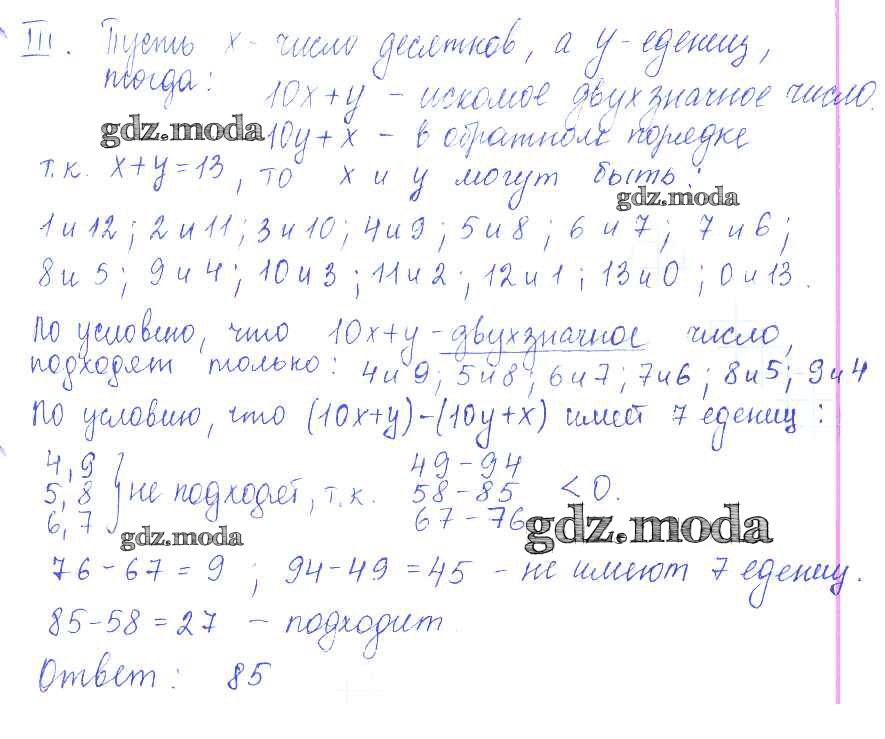 III. Пусть x - число десятков, а y - едениц,
тогда: 10x+y - искомое двухзначное число.
gdz.moda 10y+x - в обратном порядке
т.к. x+y=13, то x и y могут быть:
gdz.moda
1 и 12; 2 и 11; 3 и 10; 4 и 9; 5 и 8; 6 и 7; 7 и 6;
8 и 5; 9 и 4; 10 и 3; 11 и 2; 12 и 1; 13 и 0; 0 и 13.
По условию, что 10x+y - двухзначное число,
подходят только: 4 и 9; 5 и 8; 6 и 7; 7 и 6; 8 и 5; 9 и 4
По условию, что (10x+y)-(10y+x) имеет 7 едениц:
4,9 49-94
5,8 } не подходят, т.к. 58-85 <0.
6,7 67-76
gdz.moda gdz.moda
76-67=9; 94-49=45 - не имеют 7 едениц.
85-58=27 - подходит
Ответ: 85